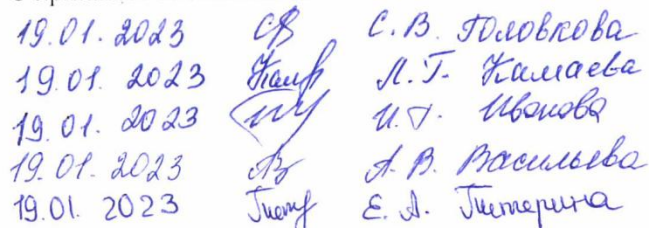 19.01.2023 С.В. Головкова
19.01.2023 Л.Г. Камаева
19.01.2023 И.Г. Иванова
19.01.2023 А.В. Васильева
19.01.2023 Е.А. Питерина